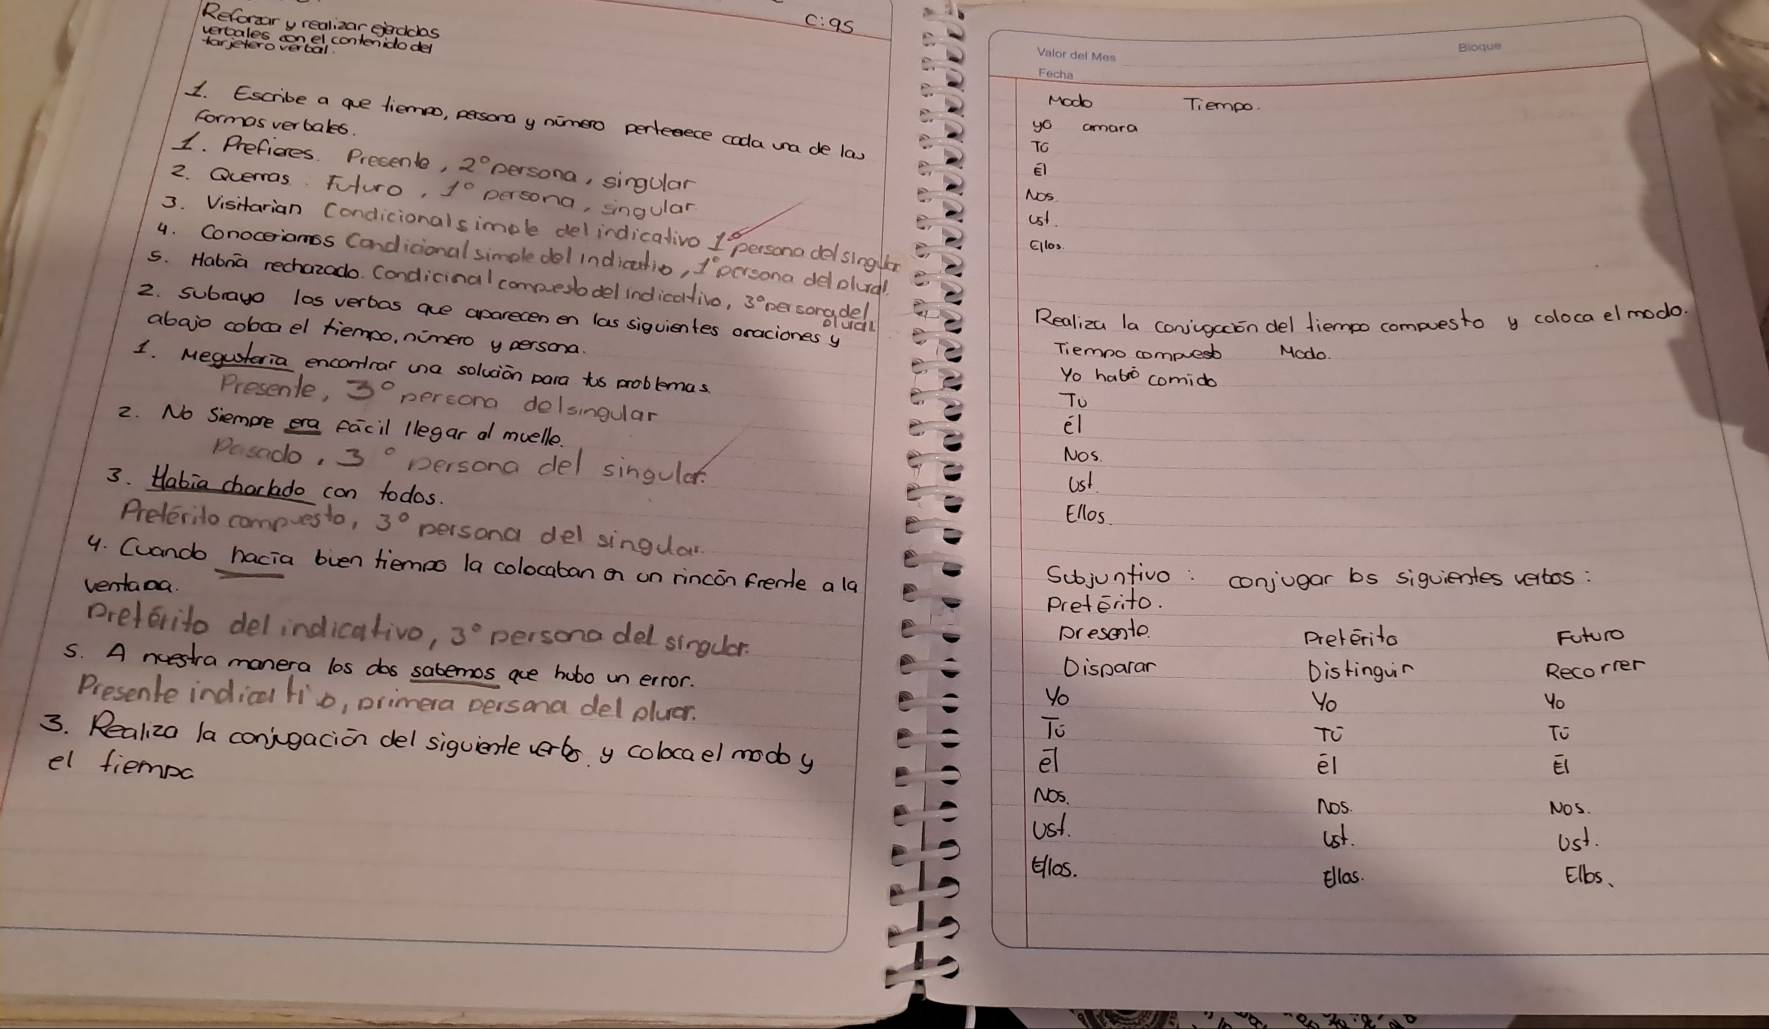 Reforzar y realizar ejercicios
verbales con el contenido del
tarjetero verbal.
C:95
1. Escribe a que tiempo, persona y número pertenece cada una de las
formas verbales.
1. Prefieres. Presente, 2° persona, singular
2. Querras. Futuro, 1° persona, singular
3. Visitarian Condicional simple del indicativo 1° persona del singular
4. Conoceriamos Condicional simple del indicativo, 1° persona del plural.
5. Habría rechazado. Condicinal compuesto del indicativo, 3° persona del
plural
2. subraya los verbos que aparecen en las siguientes oraciones y
abajo coloca el tiempo, número y persona.
1. Me gustaria encontrar una solución para tus problemas
Presente, 3° persona del singular
2. No siempre era fácil llegar al muelle.
Pasado, 3° persona del singular.
3. Había charlado con todos.
Pretérito compuesto, 3° persona del singular.
4. Cuando hacía buen tiempo la colocaban en un rincón frente a la
ventana.
Pretérito del indicativo, 3° persona del singular.
5. A nuestra manera los dos sabemos que hubo un error.
Presente indicativo, primera persona del plurar.
3. Realiza la conjugación del siguiente verbo. y coloca el modo y
el tiempo
Valor del Mes
Bloque
Fecha
Modo Tiempo.
yo amara
Tú
Él
Nos.
Ust.
Ellos.
Realiza la conjugación del tiempo compuesto y coloca el modo.
Tiempo compuesto Modo.
Yo habré comido
Tu
él
Nos.
Ust.
Ellos.
Subjuntivo: conjugar los siguientes verbos:
Pretérito.
presente. Pretérito Futuro
Disparar Distinguir Recorrer
Yo Yo Yo
Tú Tú Tú
él él Él
Nos. Nos. Nos.
Ust. Ust. Ust.
Ellos. Ellos. Ellos.